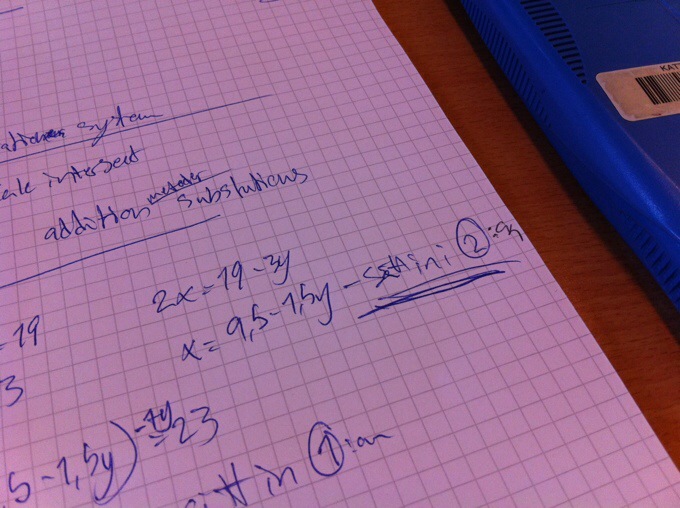 system
intersect
addition substutions
2x = 19 - 3y
= 19
x = 9,5 - 1,5y - sätt in i ② :an
3
5 - 1,5y) = 23
sätt in ① :an
KAT